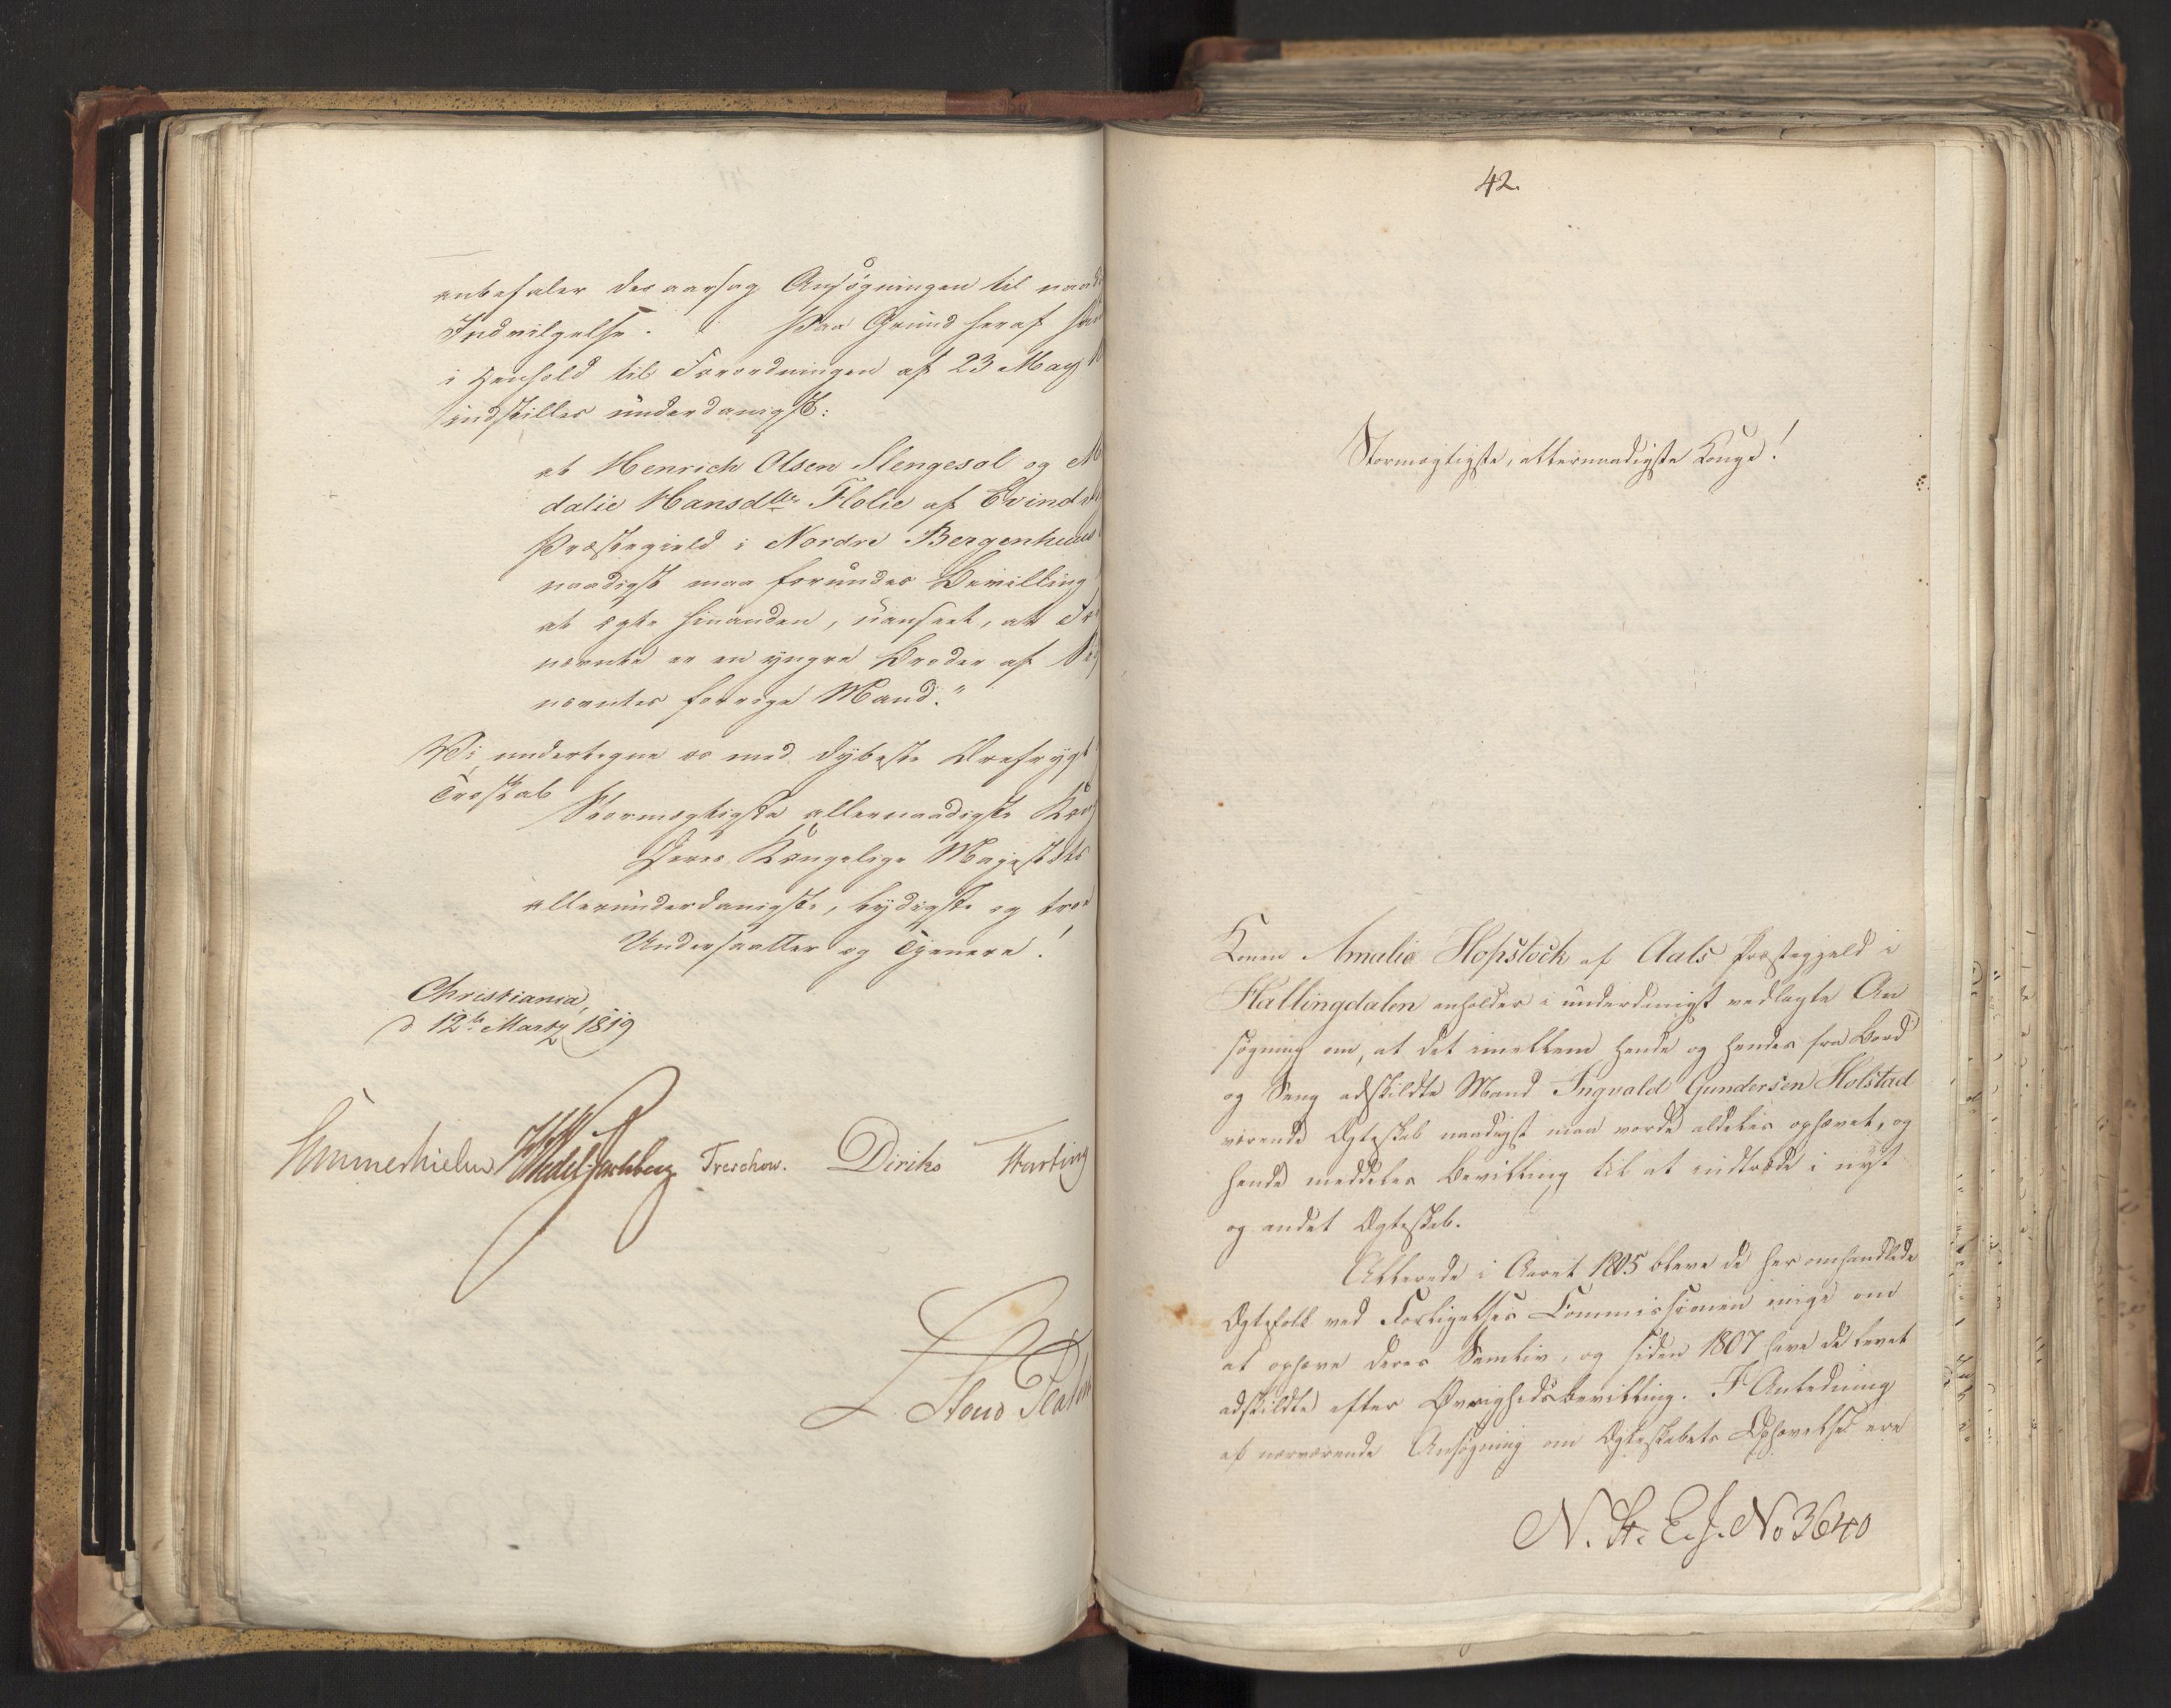 anbefaler desaarsag Ansøgningen til naadi
Indvilgelse. Paa Grund heraf
i Henhold til Forordningen af 23 May
indstilles underdanigst:
at Henrich Olsen Slengesol og M
dalie Hansdtter Flolie af Evind
Præstegield i Nordre Bergenhuus
naadigst maa forundes Bevilling
at ægte hinanden, uanseet, at Før
nævnte er en yngre Broder af
nævntes forrige Mand."
Vi undertegne os med dybeste Ærefrygt
Troskab
Stormægtigste allernaadigste Kong
Deres Kongelige Majestæts
allerunderdanigste, lydigste og troe
Undersaatter og Tjenere!
Christiania,
d 12te Martz 1819
Sommerhielm Wedel Jarlsberg Treschow. Diriks Harting
42.
Stormægtigste, allernaadigste Konge!
Konen Amalia Hopstock af Aals Præstegjæld i
Hallingdalen anholder i underdanigst vedlagte An
søgning om, at det imellem hende og hendes fra Bord
og Seng adskildte Mand Ingvald Gundersen Holstad
værende Ægteskab naadigst maa vorde aldeles ophævet, og
hende meddeles Bevilling til at indtræde i nyt
og andet Ægteskab.
Allerede i Aaret 1805 bleve de her omhandlede
Ægtefolk ved Forligelses Commissionen enige om
at ophæve deres Samliv, og siden 1807 have de levet
adskildte efter Øvrighedsbevilling. I Anledning
af nærværende Ansøgning om Ægteskabets Ophævelse ere
N. St. E. J. No 3640